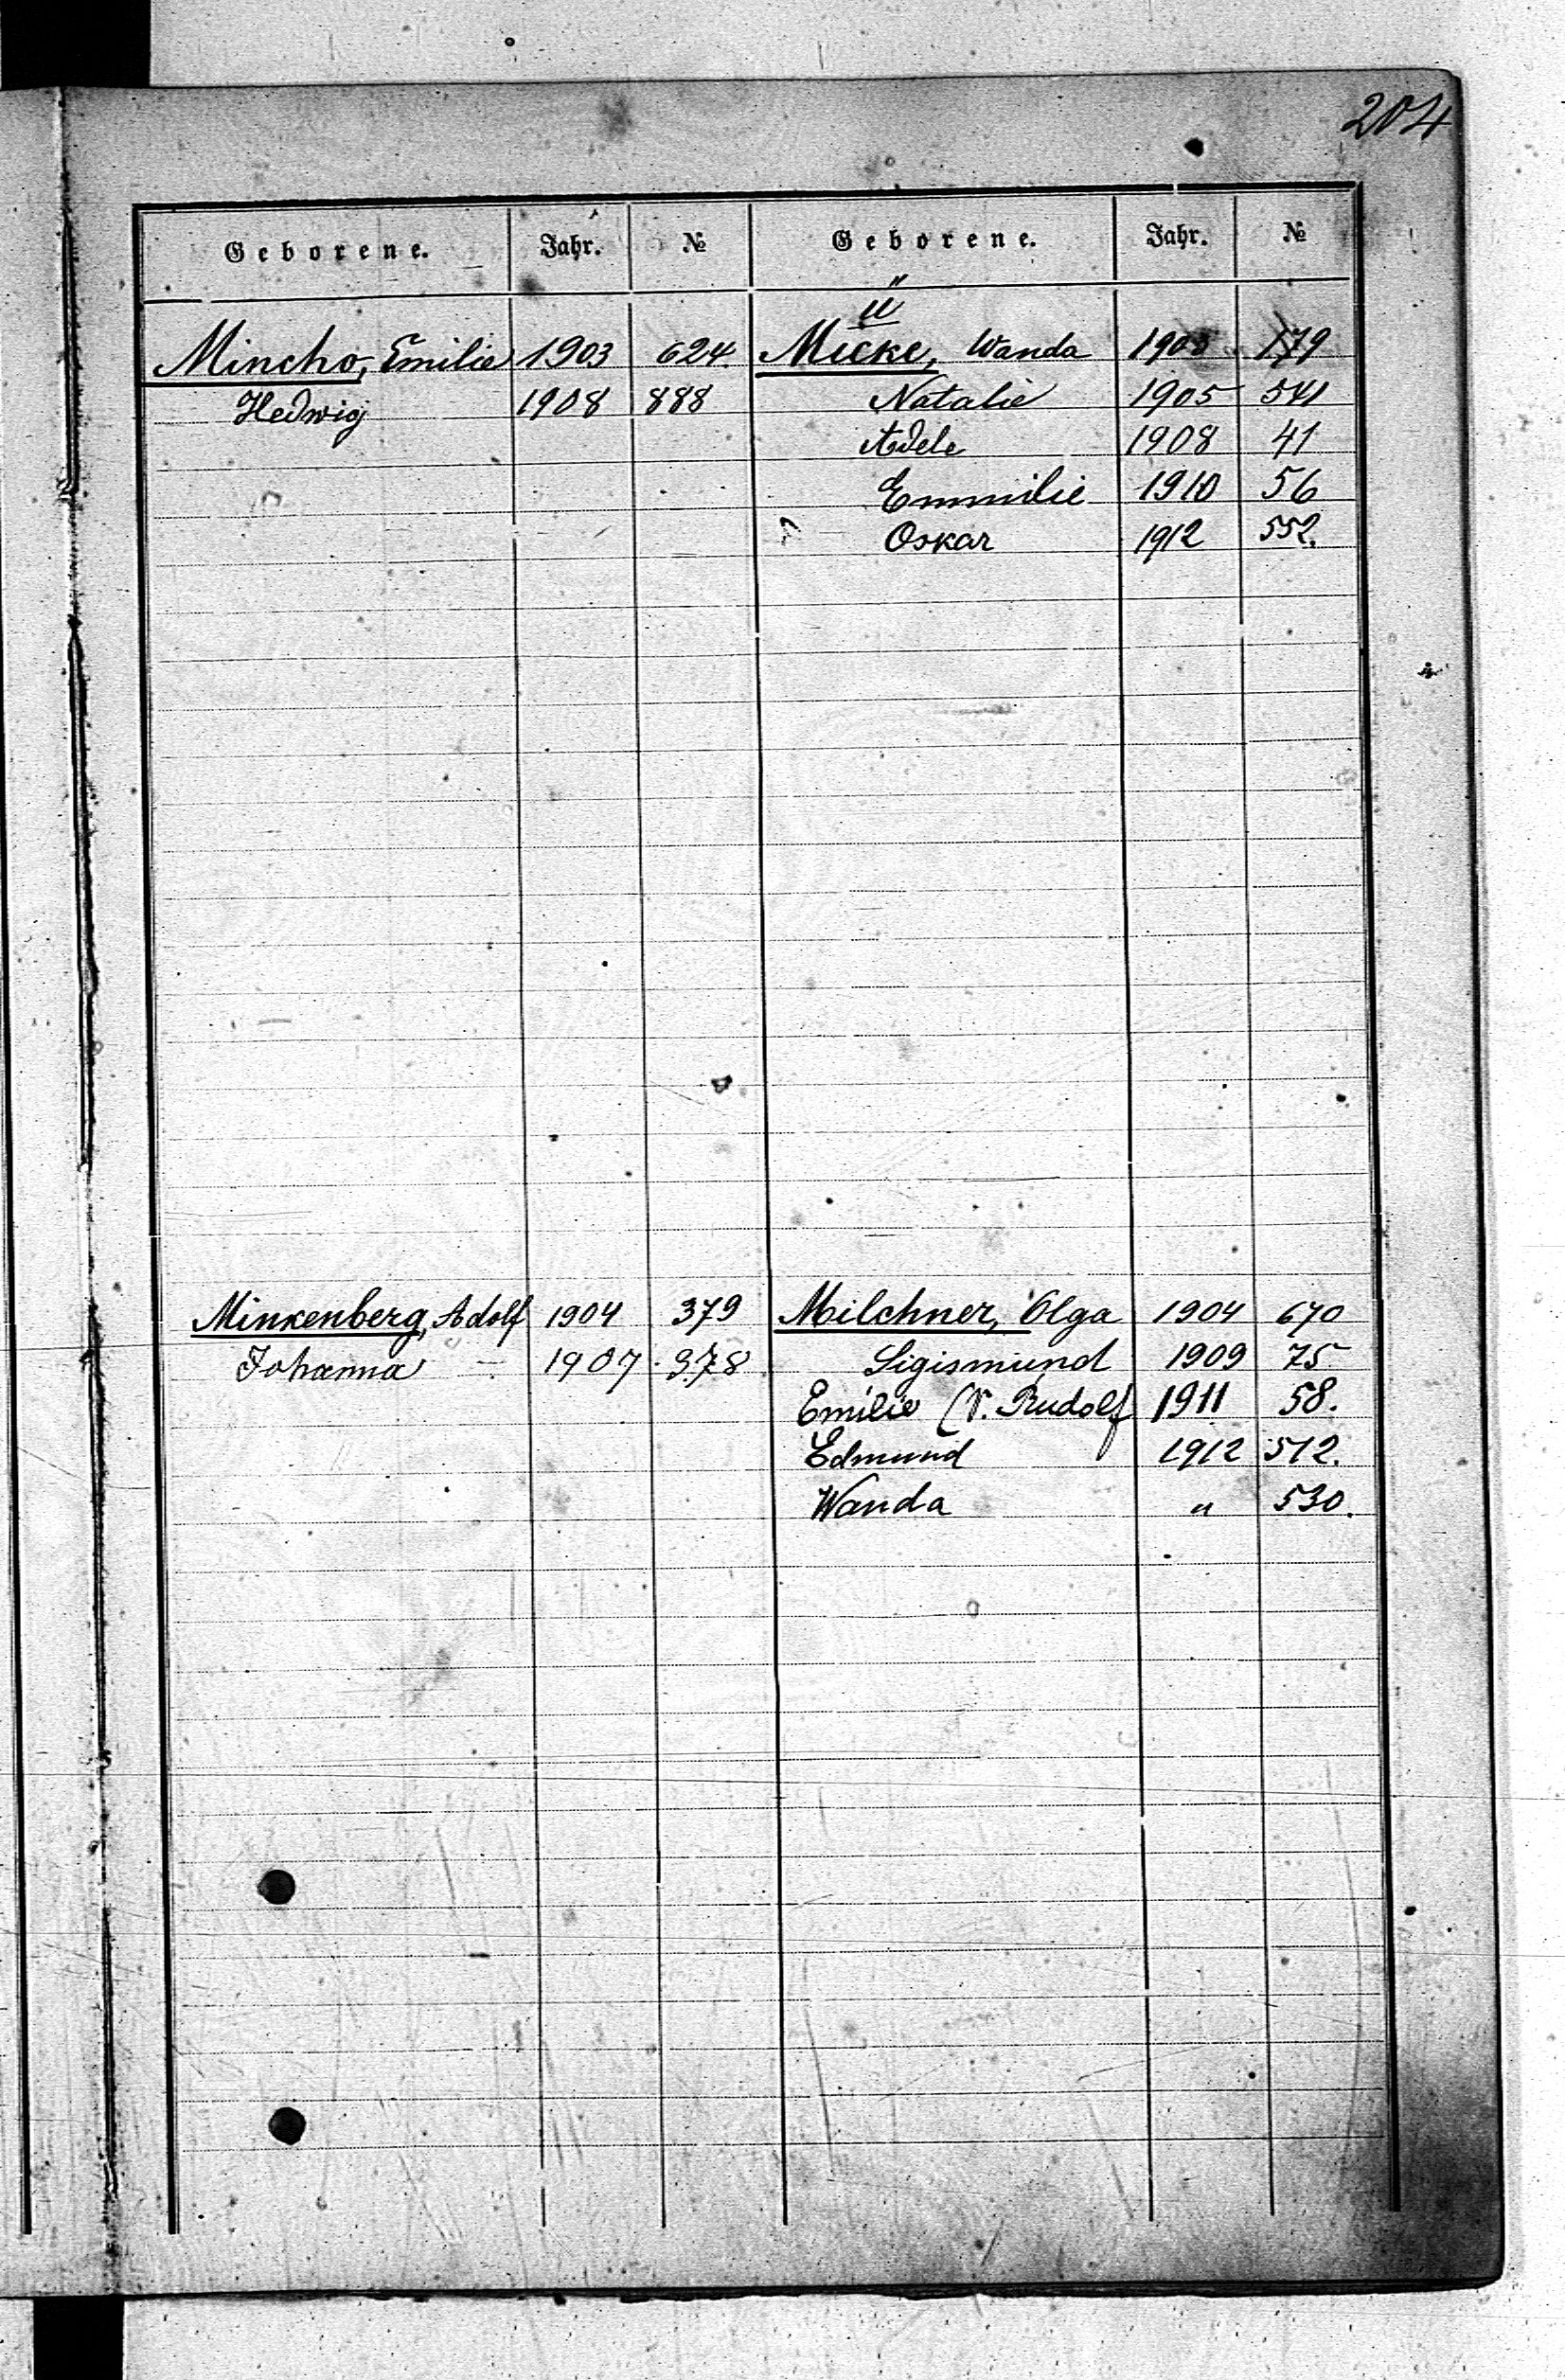 204
Geborene. Jahr. №
Mincho, Emilie 1903 624.
Hedwig 1908 888
Minkenberg, Adolf 1904 379
Johanna 1907 978
Geborene. Jahr. №
ü
Micke, Wanda 1903 179
Natalie 1905 541
Adele 1908 41
Emmilie 1910 56
Oskar 1912 552.
Milchner, Olga 1904 670
Sigismund 1909 75
Emilie (V. Rudolf 1911 58.
Edmund 1912 512.
Wanda " 530.